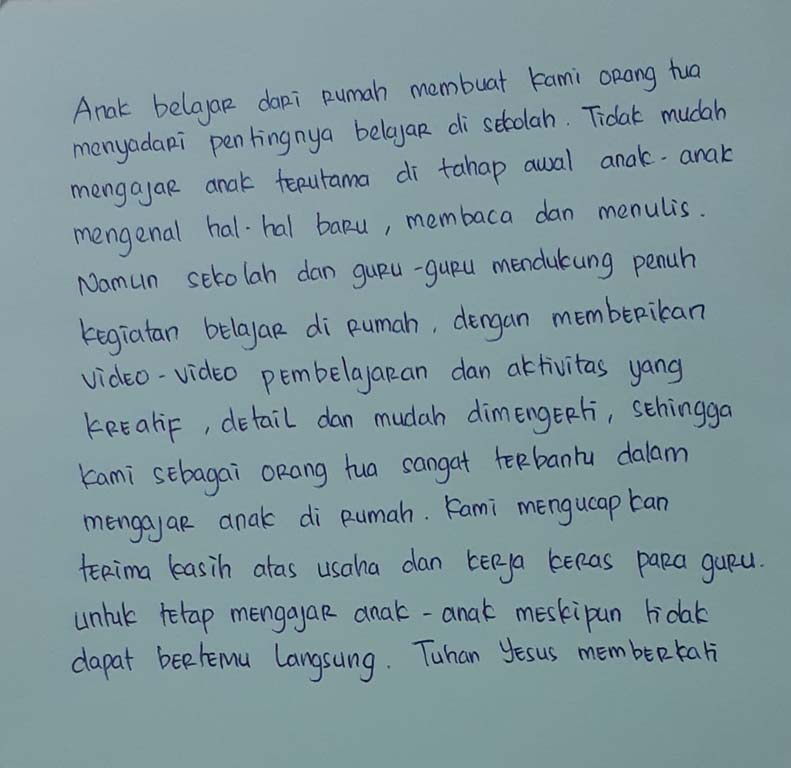 Anak belajar dari rumah membuat kami orang tua
menyadari pentingnya belajar di sekolah. Tidak mudah
mengajar anak terutama di tahap awal anak-anak
mengenal hal-hal baru, membaca dan menulis.
Namun sekolah dan guru-guru mendukung penuh
kegiatan belajar di rumah, dengan memberikan
video-video pembelajaran dan aktivitas yang
kreatif, detail dan mudah dimengerti, sehingga
kami sebagai orang tua sangat terbantu dalam
mengajar anak di rumah. Kami mengucapkan
terima kasih atas usaha dan kerja keras para guru.
untuk tetap mengajar anak-anak meskipun tidak
dapat bertemu langsung. Tuhan Yesus memberkati